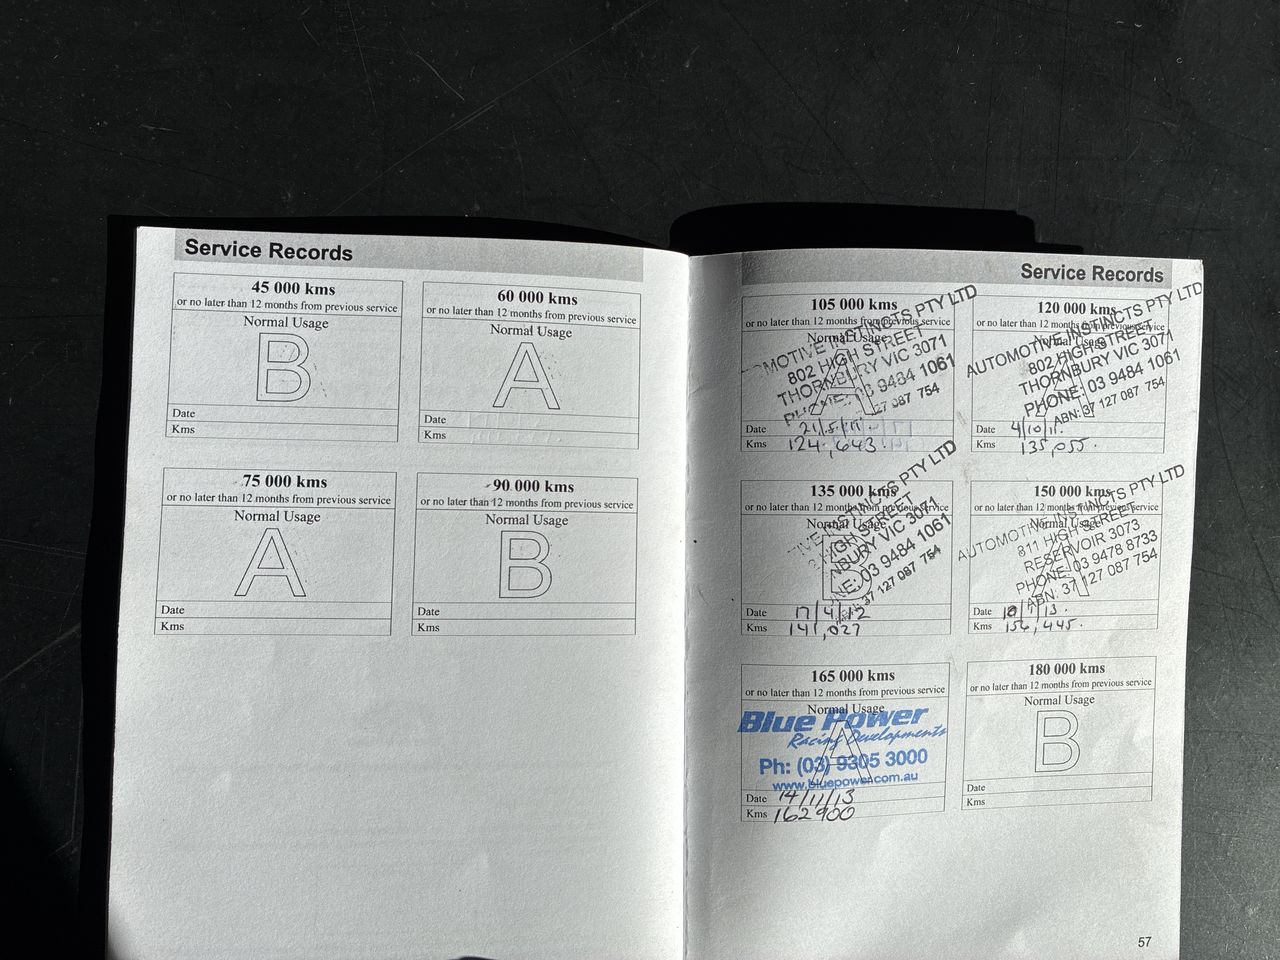 Service Records
45 000 kms
or no later than 12 months from previous service
Normal Usage
B
Date
Kms
60 000 kms
or no later than 12 months from previous service
Normal Usage
A
Date
Kms
75 000 kms
or no later than 12 months from previous service
Normal Usage
A
Date
Kms
90 000 kms
or no later than 12 months from previous service
Normal Usage
B
Date
Kms
Service Records
105 000 kms
or no later than 12 months from previous service
Normal Usage
INSTINCTS PTY LTD
802 HIGH STREET
THORNBURY VIC 3071
03 9484 1061
087 754
Date 21/5/11.
Kms 124,643.
120 000 kms
or no later than 12 months from previous service
Normal Usage
AUTOMOTIVE INSTINCTS PTY LTD
802 HIGH STREET
THORNBURY VIC 3071
PHONE: 03 9484 1061
ABN: 37 127 087 754
Date 4/10/11.
Kms 135,055.
135 000 kms
or no later than 12 months from previous service
Normal Usage
INSTINCTS PTY LTD
STREET
VIC 3071
03 9484 1061
37 127 087 754
B
Date 17/4/12
Kms 141,027
150 000 kms
or no later than 12 months from previous service
Normal Usage
AUTOMOTIVE INSTINCTS PTY LTD
811 HIGH STREET
RESERVOIR 3073
PHONE: 03 9478 8733
ABN: 37 127 087 754
A
Date
Kms 156,445.
165 000 kms
or no later than 12 months from previous service
Normal Usage
Blue Power
Racing Developments
Ph: (03) 9305 3000
www.bluepower.com.au
A
Date 14/11/13
Kms 162900
180 000 kms
or no later than 12 months from previous service
Normal Usage
B
Date
Kms
57